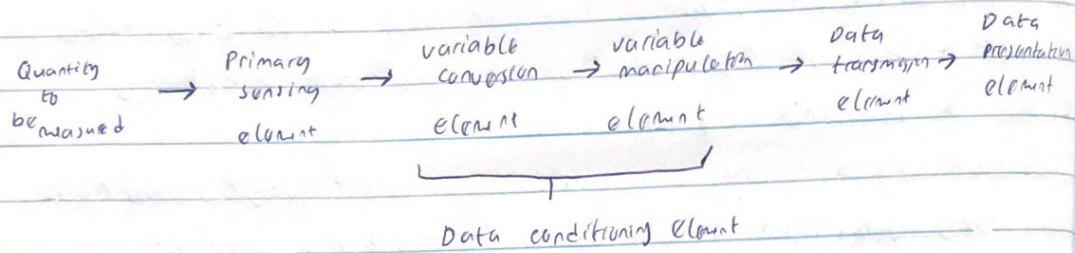 Quantity
to
be measured
Primary
sensing
element
variable
conversion
element
variable
manipulation
element
Data
transmission
element
Data
presentation
element
Data conditioning element